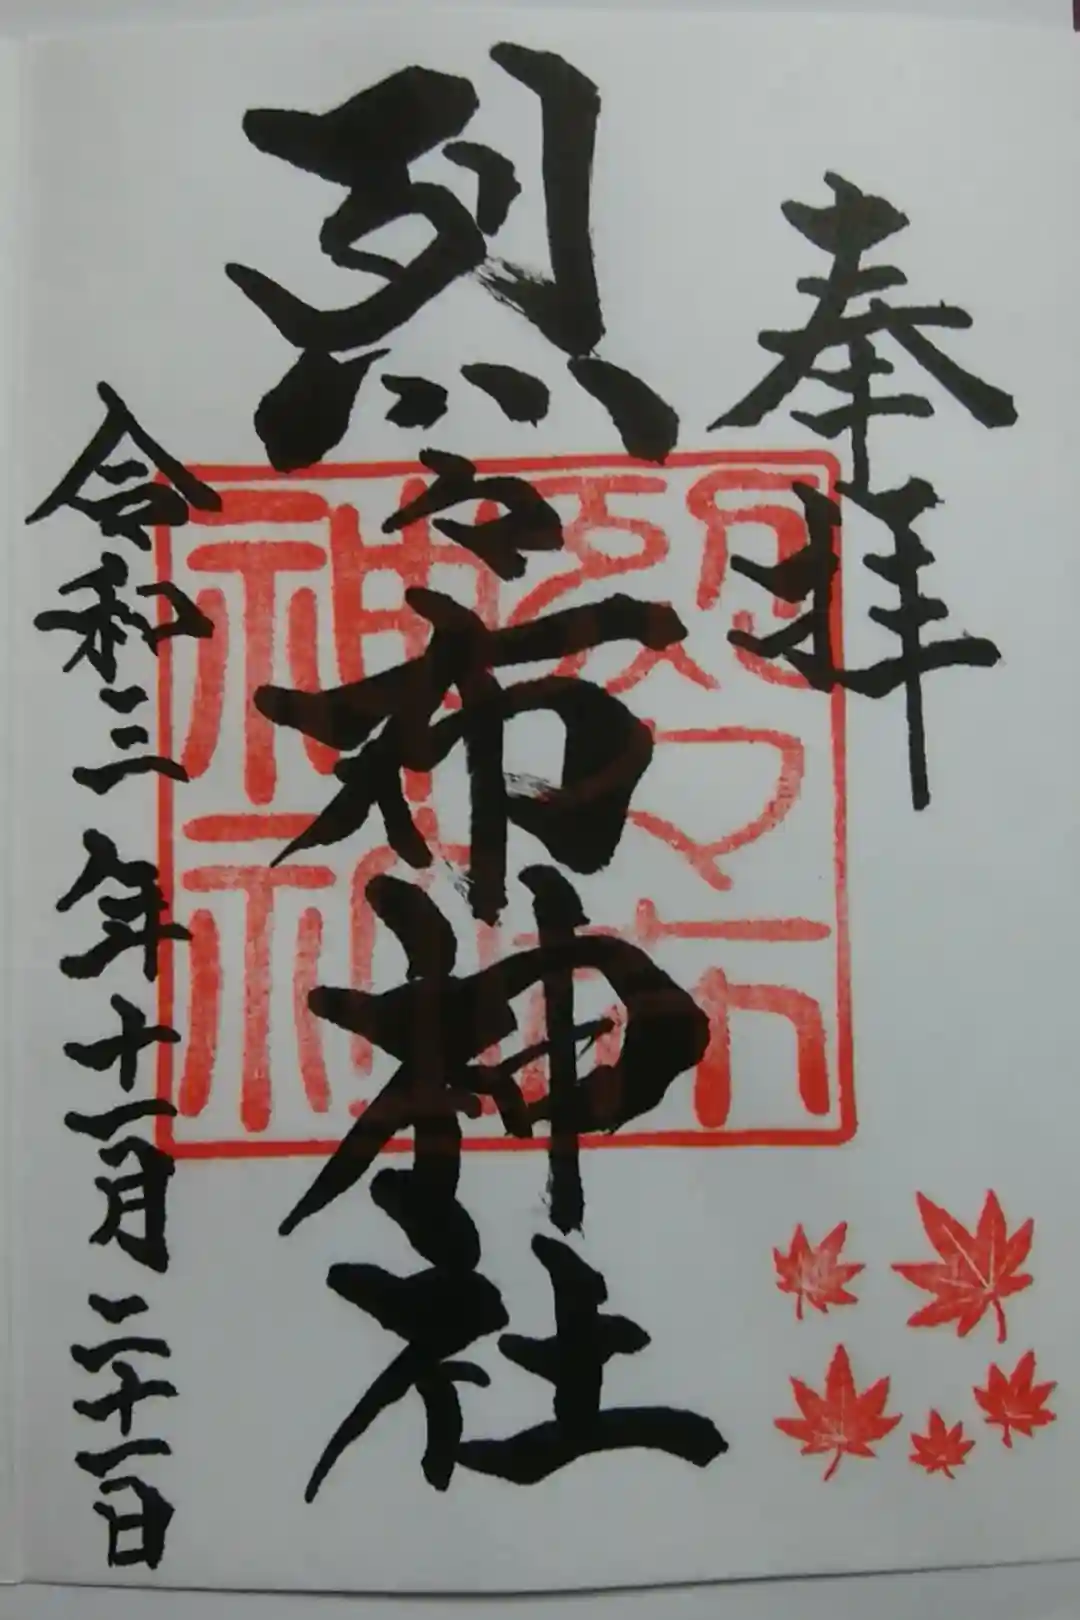 奉拝
烈々布神社
烈々布神社
令和三年十一月二十一日